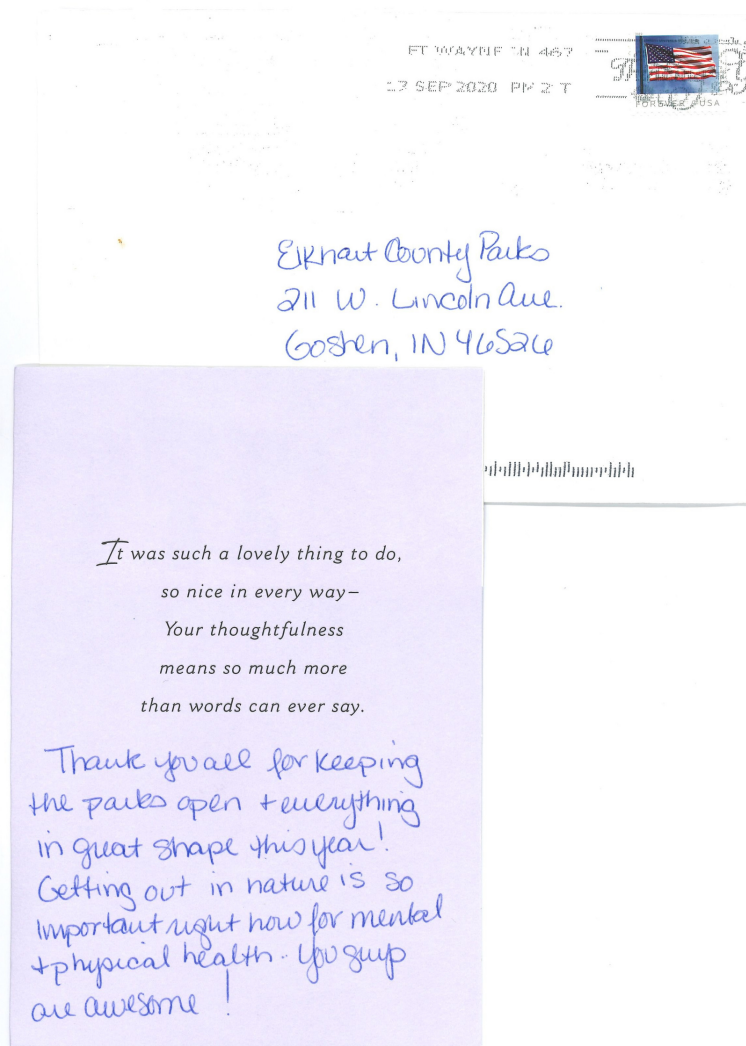 FT WAYNE IN 467
SEP 2020 PM 2 T
FOREVER USA
Elkhart County Parks
211 W. Lincoln Ave.
Goshen, IN 46526
It was such a lovely thing to do,
so nice in every way–
Your thoughtfulness
means so much more
than words can ever say.
Thank you all for keeping
the parks open + everything
in great shape this year!
Getting out in nature is so
important right now for mental
+ physical health. You guys
are awesome!